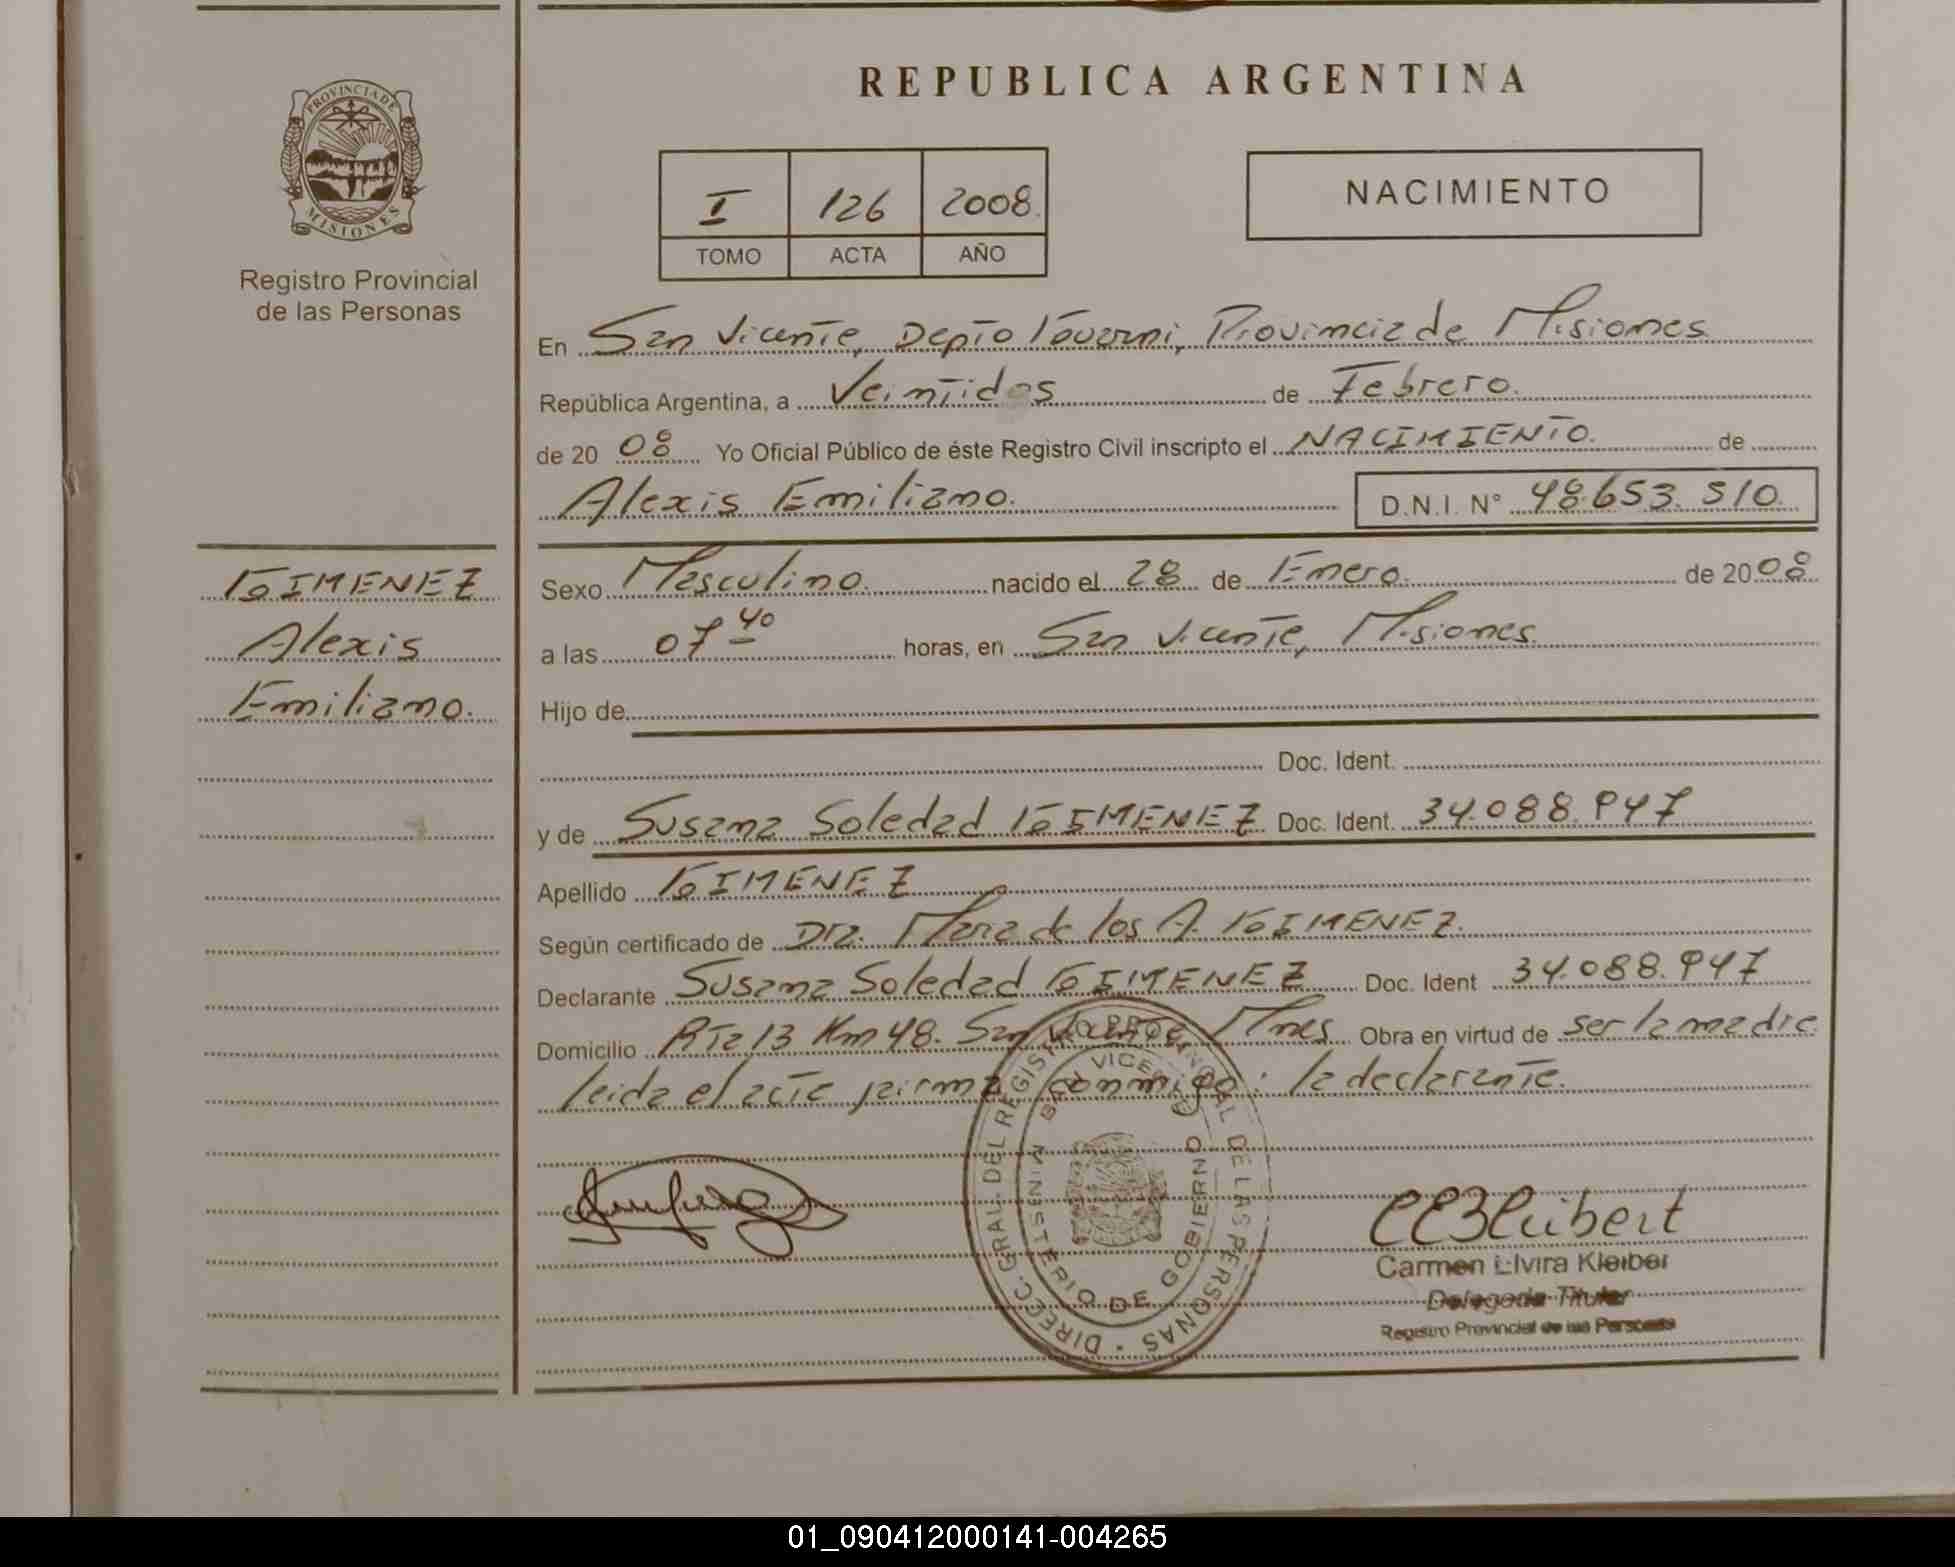 PROVINCIA DE
MISIONES
Registro Provincial
de las Personas
GIMENEZ
Alexis
Emiliano.
REPUBLICA ARGENTINA
I 126 2008.
TOMO ACTA AÑO
NACIMIENTO
En San Vicente, Depto Guarani, Provincia de Misiones
República Argentina, a Veintidos de Febrero.
de 20 08 Yo Oficial Público de éste Registro Civil inscripto el NACIMIENTO. de
Alexis Emiliano. D.N.I. N° 48.653.510.
Sexo Masculino. nacido el 28 de Enero. de 20 08
a las 07 40 horas, en San Vicente, Misiones.
Hijo de
Doc. Ident.
y de Susana Soledad GIMENEZ Doc. Ident. 34.088.947
Apellido GIMENEZ
Según certificado de Dra. Maria de los A. GIMENEZ.
Declarante Susana Soledad GIMENEZ Doc. Ident 34.088.947
Domicilio Rta 13 Km 48. San Vicente, Mnes. Obra en virtud de ser la madre.
leida el acta firma conmigo: la declarante.
DIRECC. GRAL. DEL REGISTRO PROVINCIAL DE LAS PERSONAS
SAN VICENTE
MINISTERIO DE GOBIERNO
Carmen Elvira Kleiber
Delegada Titular
Registro Provincial de las Personas
01_090412000141-004265